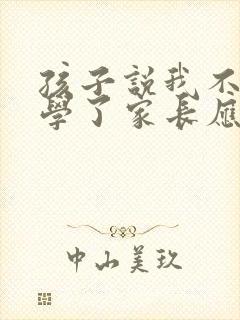 孩子説我不
學了家長應
中山美玖